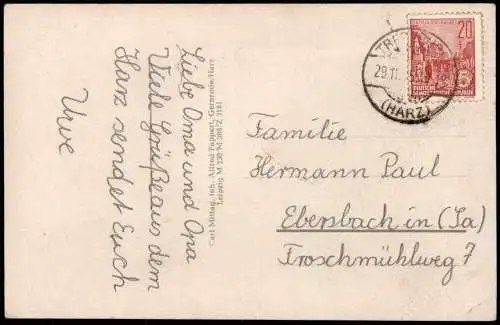 Liebe Oma und Opa
Viele Grüße aus dem
Harz sendet Euch
Uwe
Carl Mittag, Inh. Alfred Pappert, Gernrode/Harz
Leipzig M
20
DEUTSCHE
DEMOKRATISCHE REPUBLIK
29.11.
(HARZ)
Familie
Hermann Paul
Ebersbach in (Sa)
Froschmühlweg 7